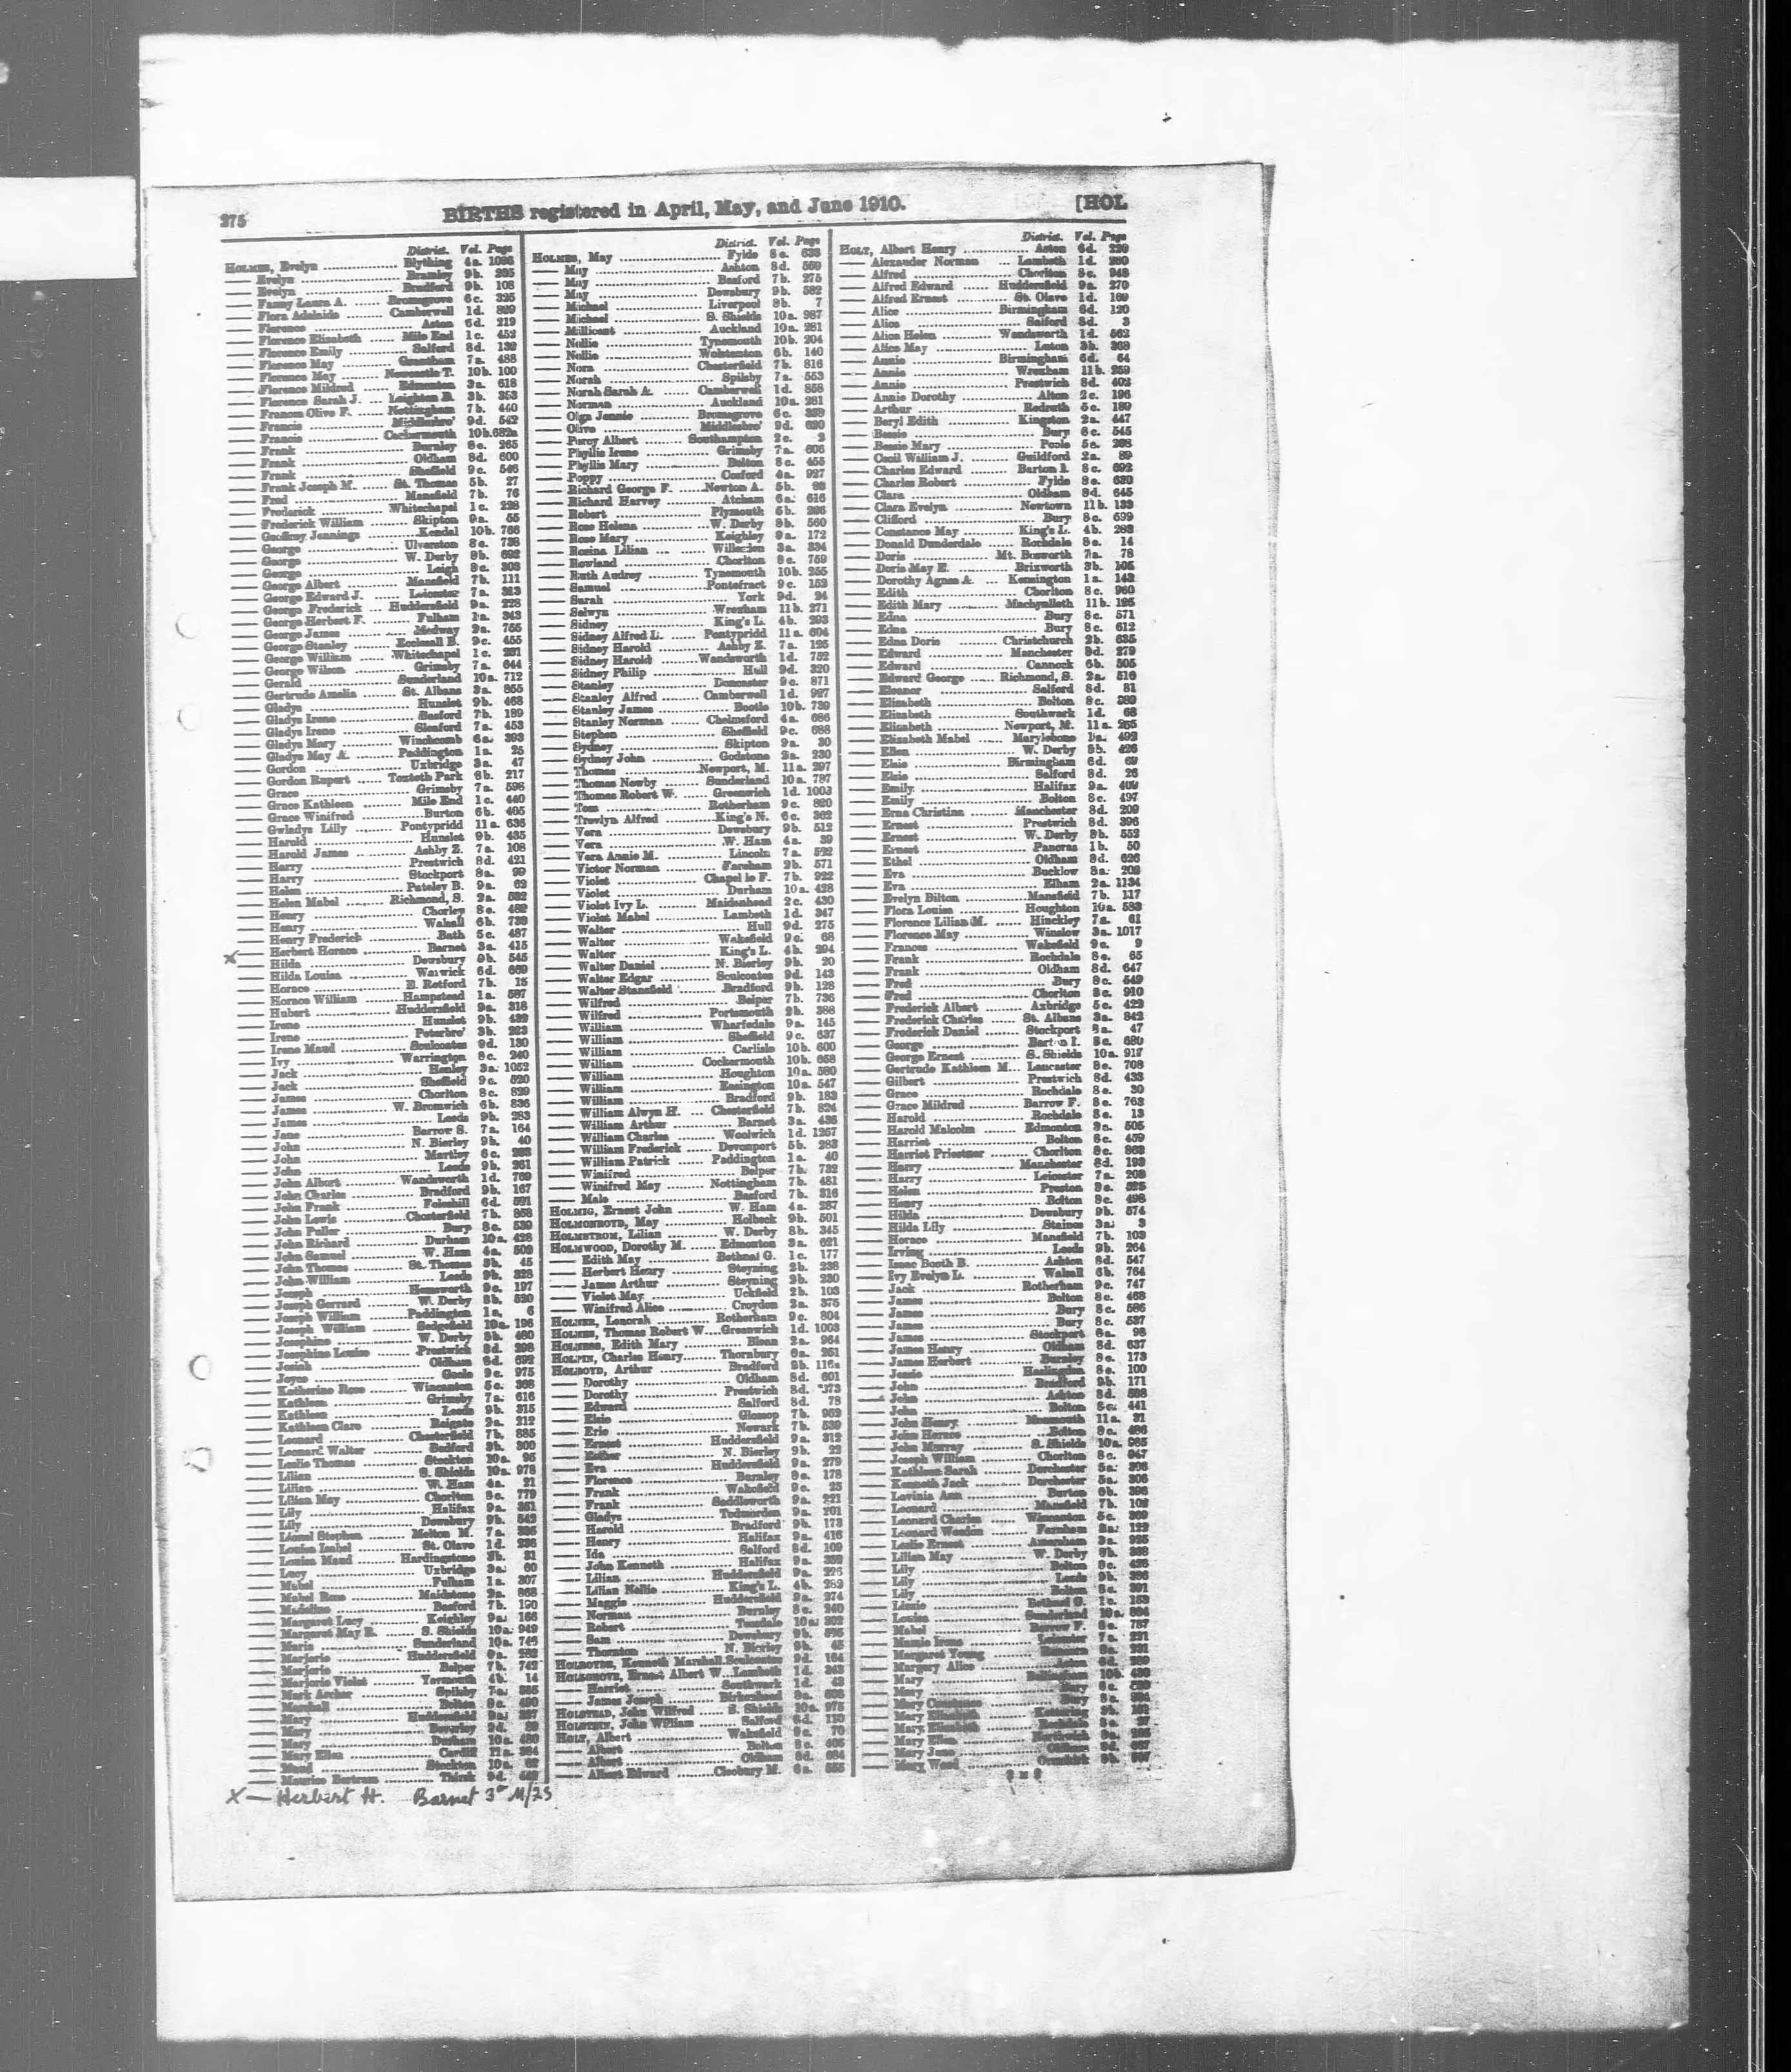 275 BIRTHS registered in April, May, and June 1910. [HOL
District. Vol. Page
HOLMES, Evelyn Blything 4a. 1086
— Evelyn Bramley 9b. 295
— Evelyn Bradford 9b. 108
— Fanny Laura A. Bromsgrove 6c. 325
— Flora Adelaide Camberwell 1d. 899
— Florence Aston 6d. 219
— Florence Elizabeth Mile End 1c. 452
— Florence Emily Salford 8d. 139
— Florence May Grantham 7a. 488
— Florence May Newcastle T. 10b. 100
— Florence Mildred Edmonton 3a. 618
— Florence Sarah J. Leighton B. 3b. 353
— Frances Olive F. Nottingham 7b. 440
— Francis Middlesbro' 9d. 542
— Francis Cockermouth 10b. 682a
— Frank Burnley 8e. 265
— Frank Oldham 8d. 600
— Frank Sheffield 9c. 546
— Frank Joseph M. St. Thomas 5b. 27
— Fred Mansfield 7b. 76
— Frederick Whitechapel 1c. 228
— Frederick William Skipton 9a. 55
— Geoffrey Jennings Kendal 10b. 766
— George Ulverston 8e. 738
— George W. Derby 8b. 692
— George Leigh 8c. 303
— George Albert Mansfield 7b. 111
— George Edward J. Leicester 7a. 313
— George Frederick Huddersfield 9a. 228
— George Herbert F. Fulham 1a. 343
— George James Medway 2a. 755
— George Stanley Ecclesall B. 9c. 455
— George William Whitechapel 1c. 231
— George Wilson Grimsby 7a. 644
— Gerald Sunderland 10a. 712
— Gertrude Amelia St. Albans 3a. 855
— Gladys Hunslet 9b. 468
— Gladys Irene Basford 7b. 189
— Gladys Irene Sleaford 7a. 453
— Gladys Mary Winchcomb 6a. 393
— Gladys May A. Paddington 1a. 25
— Gordon Uxbridge 3a. 47
— Gordon Rupert Toxteth Park 8b. 217
— Grace Grimsby 7a. 598
— Grace Kathleen Mile End 1c. 440
— Grace Winifred Burton 6b. 405
— Gwladys Lilly Pontypridd 11a. 636
— Harold Hunslet 9b. 435
— Harold James Ashby Z. 7a. 108
— Harry Prestwich 8d. 421
— Harry Stockport 8a. 99
— Helen Pateley B. 9a. 62
— Helen Mabel Richmond, S. 2a. 532
— Henry Chorley 8e. 482
— Henry Walsall 6b. 739
— Henry Frederick Bath 5c. 487
X — Herbert Horace Barnet 3a. 415
— Hilda Dewsbury 9b. 545
— Hilda Louisa Warwick 6d. 669
— Horace E. Retford 7b. 15
— Horace William Hampstead 1a. 587
— Hubert Huddersfield 9a. 318
— Irene Hunslet 9b. 432
— Irene Peterbro' 3b. 263
— Irene Maud Sculcoates 9d. 130
— Ivy Warrington 8c. 240
— Jack Henley 3a. 1052
— Jack Sheffield 9c. 520
— James Chorlton 8c. 829
— James W. Bromwich 6b. 836
— James Leeds 9b. 283
— Jane Barrow S. 7a. 164
— John N. Bierley 9b. 40
— John Martley 6c.
— John Leeds 9b. 261
— John Albert Wandsworth 1d. 769
— John Charles Bradford 9b. 167
— John Frank Foleshill 6d. 591
— John Lewis Chesterfield 7b. 858
— John Fuller Bury 8c. 539
— John Richard Durham 10a. 428
— John Samuel W. Ham 4a. 502
— John Thomas St. Thomas 5b. 45
— John William Leeds 9b. 328
— Joseph Hemsworth 9c. 197
— Joseph Gerrard W. Derby 8b. 520
— Joseph William Paddington 1a. 6
— Joseph William Sedgefield 10a. 196
— Josephine W. Derby 8b. 480
— Josephine Louise Prestwich 8d. 298
— Josiah Oldham 8d. 692
— Joyce Goole 9c. 975
— Katherine Rose Wincanton 5c. 368
— Kathleen Grimsby 7a. 616
— Kathleen Leeds 9b. 315
— Kathleen Clare Reigate 2a. 212
— Leonard Chesterfield 7b. 885
— Leonard Walter Bedford 3b. 300
— Leslie Thomas Stockton 10a. 95
— Lilian S. Shields 10a. 978
— Lilian W. Ham 4a. 21
— Lilian May Chorlton 8c. 779
— Lily Halifax 9a. 351
— Lily Dewsbury 9b. 542
— Lionel Stephen Melton M. 7a.
— Louisa Isabel St. Olave 1d. 236
— Louisa Maud Hardingstone 3b. 31
— Lucy Uxbridge 3a. 60
— Mabel Fulham 1a. 307
— Mabel Rose Maidstone 2a. 868
— Madeline Basford 7b. 190
— Margaret Lucy Keighley 9a. 166
— Margaret May B. S. Shields 10a. 949
— Maria Sunderland 10a. 745
— Marjorie Huddersfield 9a. 262
— Marjorie Belper 7b. 742
— Marjorie Violet Yarmouth 4b. 14
— Mark Archer Spilsby 7a.
— Marshall Bolton 8c. 490
— Mary Huddersfield 9a.
— Mary Beverley 9d.
— Mary Durham 10a. 480
— Mary Ellen Cardiff 11a.
— Maud Stockton 10a.
— Maurice Bertram Thirsk 9d.
District. Vol. Page
HOLMES, May Fylde 8e. 633
— May Ashton 8d. 569
— May Basford 7b. 275
— May Dewsbury 9b. 582
— Michael Liverpool 8b. 7
— Michael S. Shields 10a. 987
— Millicent Auckland 10a. 281
— Nellie Tynemouth 10b. 204
— Nellie Wolstanton 6b. 140
— Nora Chesterfield 7b. 816
— Norah Spilsby 7a. 553
— Norah Sarah A. Camberwell 1d. 858
— Norman Auckland 10a. 281
— Olga Jennie Bromsgrove 6c. 339
— Olive Middlesbro' 9d. 620
— Percy Albert Southampton 2c. 2
— Phyllis Irene Grimsby 7a. 606
— Phyllis Mary Bolton 8c. 455
— Poppy Cosford 4a. 927
— Richard George F. Newton A. 5b. 98
— Richard Harvey Atcham 6a. 616
— Robert Plymouth 5b. 296
— Rose Helena W. Derby 8b. 560
— Rose Mary Keighley 9a. 172
— Rosina Lilian Willesden 3a. 334
— Rowland Chorlton 8c. 759
— Ruth Audrey Tynemouth 10b. 255
— Samuel Pontefract 9c. 152
— Sarah York 9d. 24
— Selwyn Wrexham 11b. 271
— Sidney King's L. 4b. 293
— Sidney Alfred L. Pontypridd 11a. 604
— Sidney Harold Ashby Z. 7a. 125
— Sidney Harold Wandsworth 1d. 752
— Sidney Philip Hull 9d. 320
— Stanley Doncaster 9c. 871
— Stanley Alfred Camberwell 1d. 927
— Stanley James Bootle 10b. 739
— Stanley Norman Chelmsford 4a. 686
— Stephen Sheffield 9c. 688
— Sydney Skipton 9a. 30
— Sydney John Godstone 2a. 230
— Thomas Newport, M. 11a. 297
— Thomas Newby Sunderland 10a. 787
— Thomas Robert W. Greenwich 1d. 1003
— Tom Rotherham 9c. 820
— Trevlyn Alfred King's N. 6c. 362
— Vera Dewsbury 9b. 512
— Vera W. Ham 4a. 39
— Vera Annie M. Lincoln 7a. 522
— Victor Norman Fareham 2b. 571
— Violet Chapel le F. 7b. 922
— Violet Durham 10a. 428
— Violet Ivy L. Maidenhead 2c. 430
— Violet Mabel Lambeth 1d. 347
— Walter Hull 9d. 275
— Walter Wakefield 9c. 68
— Walter King's L. 4b. 294
— Walter Daniel N. Bierley 9b. 20
— Walter Edgar Sculcoates 9d. 143
— Walter Stansfield Bradford 9b. 128
— Wilfred Belper 7b. 736
— Wilfred Portsmouth 2b. 388
— William Wharfedale 9a. 145
— William Sheffield 9c. 637
— William Carlisle 10b. 600
— William Cockermouth 10b. 658
— William Houghton 10a. 580
— William Easington 10a. 547
— William Bradford 9b. 183
— William Alwyn H. Chesterfield 7b. 824
— William Arthur Barnet 3a. 436
— William Charles Woolwich 1d. 1267
— William Frederick Devonport 5b. 283
— William Patrick Paddington 1a. 40
— Winifred Belper 7b. 732
— Winifred May Nottingham 7b. 481
— Male Basford 7b. 316
HOLMIG, Ernest John W. Ham 4a. 287
HOLMONROYD, May Holbeck 9b. 501
HOLMSTROM, Lilian W. Derby 8b. 345
HOLMWOOD, Dorothy M. Edmonton 3a. 621
— Edith May Bethnal G. 1c. 177
— Herbert Henry Steyning 2b. 238
— James Arthur Steyning 2b. 230
— Violet May Uckfield 2b. 103
— Winifred Alice Croydon 2a. 375
HOLNER, Lenorah Rotherham 9c. 804
HOLNES, Thomas Robert W. Greenwich 1d. 1003
HOLNESS, Edith Mary Blean 2a. 964
HOLPIN, Charles Henry Thornbury 6a. 251
HOLROYD, Arthur Bradford 9b. 116a
— Dorothy Oldham 8d. 601
— Dorothy Prestwich 8d. 373
— Edward Salford 8d. 78
— Elsie Glossop 7b. 952
— Eric Newark 7b. 539
— Ernest Huddersfield 9a. 312
— Esther N. Bierley 9b. 22
— Eva Huddersfield 9a. 279
— Florence Burnley 8e. 178
— Frank Wakefield 9c. 25
— Frank Saddleworth 9a. 221
— Gladys Todmorden 9a. 201
— Harold Bradford 9b. 173
— Henry Halifax 9a. 416
— Ida Salford 8d. 109
— John Kenneth Halifax 9a. 352
— Lilian Huddersfield 9a. 226
— Lilian Nellie King's L. 4b. 283
— Maggie Huddersfield 9a. 274
— Norman Burnley 8e. 240
— Robert Teesdale 10a. 202
— Sam Dewsbury 9b.
— Thornton N. Bierley 9b. 45
HOLROYDE, Kenneth Marshall Sculcoates 9d. 164
HOLSGROVE, Ernest Albert W. Lambeth 1d. 343
— Harriet Southwark 1d. 43
— James Joseph Birkenhead 8a.
HOLSTEAD, John Wilfred S. Shields 10a. 975
HOLSTEIN, John William Salford 8d. 110
HOLT, Albert Wakefield 9c. 70
— Albert Bolton 8c. 406
— Albert Oldham 8d. 684
— Albert Edward Cleobury M. 6a. 555
District. Vol. Page
HOLT, Albert Henry Aston 6d. 220
— Alexander Norman Lambeth 1d. 280
— Alfred Chorlton 8c. 948
— Alfred Edward Huddersfield 9a. 270
— Alfred Ernest St. Olave 1d. 169
— Alice Birmingham 6d. 120
— Alice Salford 8d. 3
— Alice Helen Wandsworth 1d. 562
— Alice May Luton 3b. 368
— Annie Birmingham 6d. 64
— Annie Wrexham 11b. 259
— Annie Prestwich 8d. 402
— Annie Dorothy Alton 2c. 196
— Arthur Redruth 5c. 189
— Beryl Edith Kingston 2a. 447
— Bessie Bury 8c. 545
— Bessie Mary Poole 5a. 268
— Cecil William J. Guildford 2a. 89
— Charles Edward Barton I. 8c. 692
— Charles Robert Fylde 8e. 630
— Clara Oldham 8d. 645
— Clara Evelyn Newtown 11b. 133
— Clifford Bury 8c. 699
— Constance May King's L. 4b. 283
— Donald Dunderdale Rochdale 8e. 14
— Doris Mt. Bosworth 7a. 78
— Doris May E. Brixworth 3b. 105
— Dorothy Agnes A. Kensington 1a. 142
— Edith Chorlton 8c. 960
— Edith Mary Machynlleth 11b. 125
— Edna Bury 8c. 571
— Edna Bury 8c. 612
— Edna Doris Christchurch 2b. 635
— Edward Manchester 8d. 279
— Edward Cannock 6b. 505
— Edward George Richmond, S. 2a. 516
— Eleanor Salford 8d. 81
— Elizabeth Bolton 8c. 389
— Elizabeth Southwark 1d. 68
— Elizabeth Newport, M. 11a. 265
— Elizabeth Mabel Marylebone 1a. 492
— Ellen W. Derby 8b. 426
— Elsie Birmingham 6d. 69
— Elsie Salford 8d. 26
— Emily Halifax 9a. 409
— Emily Bolton 8c. 497
— Erna Christina Manchester 8d. 209
— Ernest Prestwich 8d. 396
— Ernest W. Derby 8b. 552
— Ernest Pancras 1b. 50
— Ethel Oldham 8d. 626
— Eva Bucklow 8a. 208
— Eva Elham 2a. 1134
— Evelyn Bilton Mansfield 7b. 117
— Flora Louisa Houghton 10a. 583
— Florence Lilian M. Hinckley 7a. 61
— Florence May Winslow 3a. 1017
— Frances Wakefield 9c. 9
— Frank Rochdale 8e. 65
— Frank Oldham 8d. 647
— Fred Bury 8c. 549
— Fred Chorlton 8c. 910
— Frederick Albert Axbridge 5c. 422
— Frederick Charles St. Albans 3a. 842
— Frederick Daniel Stockport 8a. 47
— George Barton I. 8c. 680
— George Ernest S. Shields 10a. 917
— Gertrude Kathleen M. Lancaster 8e. 708
— Gilbert Prestwich 8d. 433
— Grace Rochdale 8e. 30
— Grace Mildred Barrow F. 8e. 763
— Harold Rochdale 8e. 13
— Harold Malcolm Edmonton 3a. 505
— Harriet Bolton 8c. 459
— Harriet Priestner Chorlton 8c. 862
— Harry Manchester 8d. 193
— Harry Leicester 7a. 203
— Helen Preston 8e. 525
— Henry Bolton 8c. 498
— Hilda Dewsbury 9b. 574
— Hilda Lily Staines 3a. 3
— Horace Mansfield 7b. 103
— Irving Leeds 9b. 264
— Isaac Booth B. Ashton 8d. 547
— Ivy Evelyn L. Walsall 6b. 764
— Jack Rotherham 9c. 747
— James Bolton 8c. 468
— James Bury 8c. 586
— James Bury 8c. 537
— James Stockport 8a. 98
— James Henry Oldham 8d. 637
— James Herbert Burnley 8e. 173
— Jessie Haslingden 8e. 100
— John Bradford 9b. 171
— John Ashton 8d. 588
— John Bolton 8c. 441
— John Henry Monmouth 11a. 31
— John Horace Bolton 8c. 486
— John Murray S. Shields 10a. 985
— Joseph William Chorlton 8c. 947
— Kathleen Sarah Dorchester 5a. 306
— Kenneth Jack Dorchester 5a. 306
— Lavinia Ann Burton 6b. 396
— Leonard Mansfield 7b. 102
— Leonard Charles Wincanton 5c. 369
— Leonard Weedon Farnham 2a. 122
— Leslie Ernest Amersham 3a. 925
— Lilian May W. Derby 8b. 498
— Lily Bolton 8c. 426
— Lily Leeds 9b. 386
— Lily Bolton 8c. 391
— Lizzie Bethnal G. 1c. 153
— Louisa Sunderland 10a. 894
— Mabel Barrow F. 8e. 787
— Mamie Irene Leicester 7a. 231
— Margaret Young
— Margery Alice Aston 6d.
— Mary Bellingham 10b. 430
— Mary Bury 8c.
— Mary Constance Bury 8c.
— Mary Elizabeth Kettering 3b. 162
— Mary Elizabeth Rochdale 8e.
— Mary Ellen
— Mary Jane Oldham 8d.
— Mary Wood Ormskirk 8b.
X — Herbert H. Barnet 3a M/23